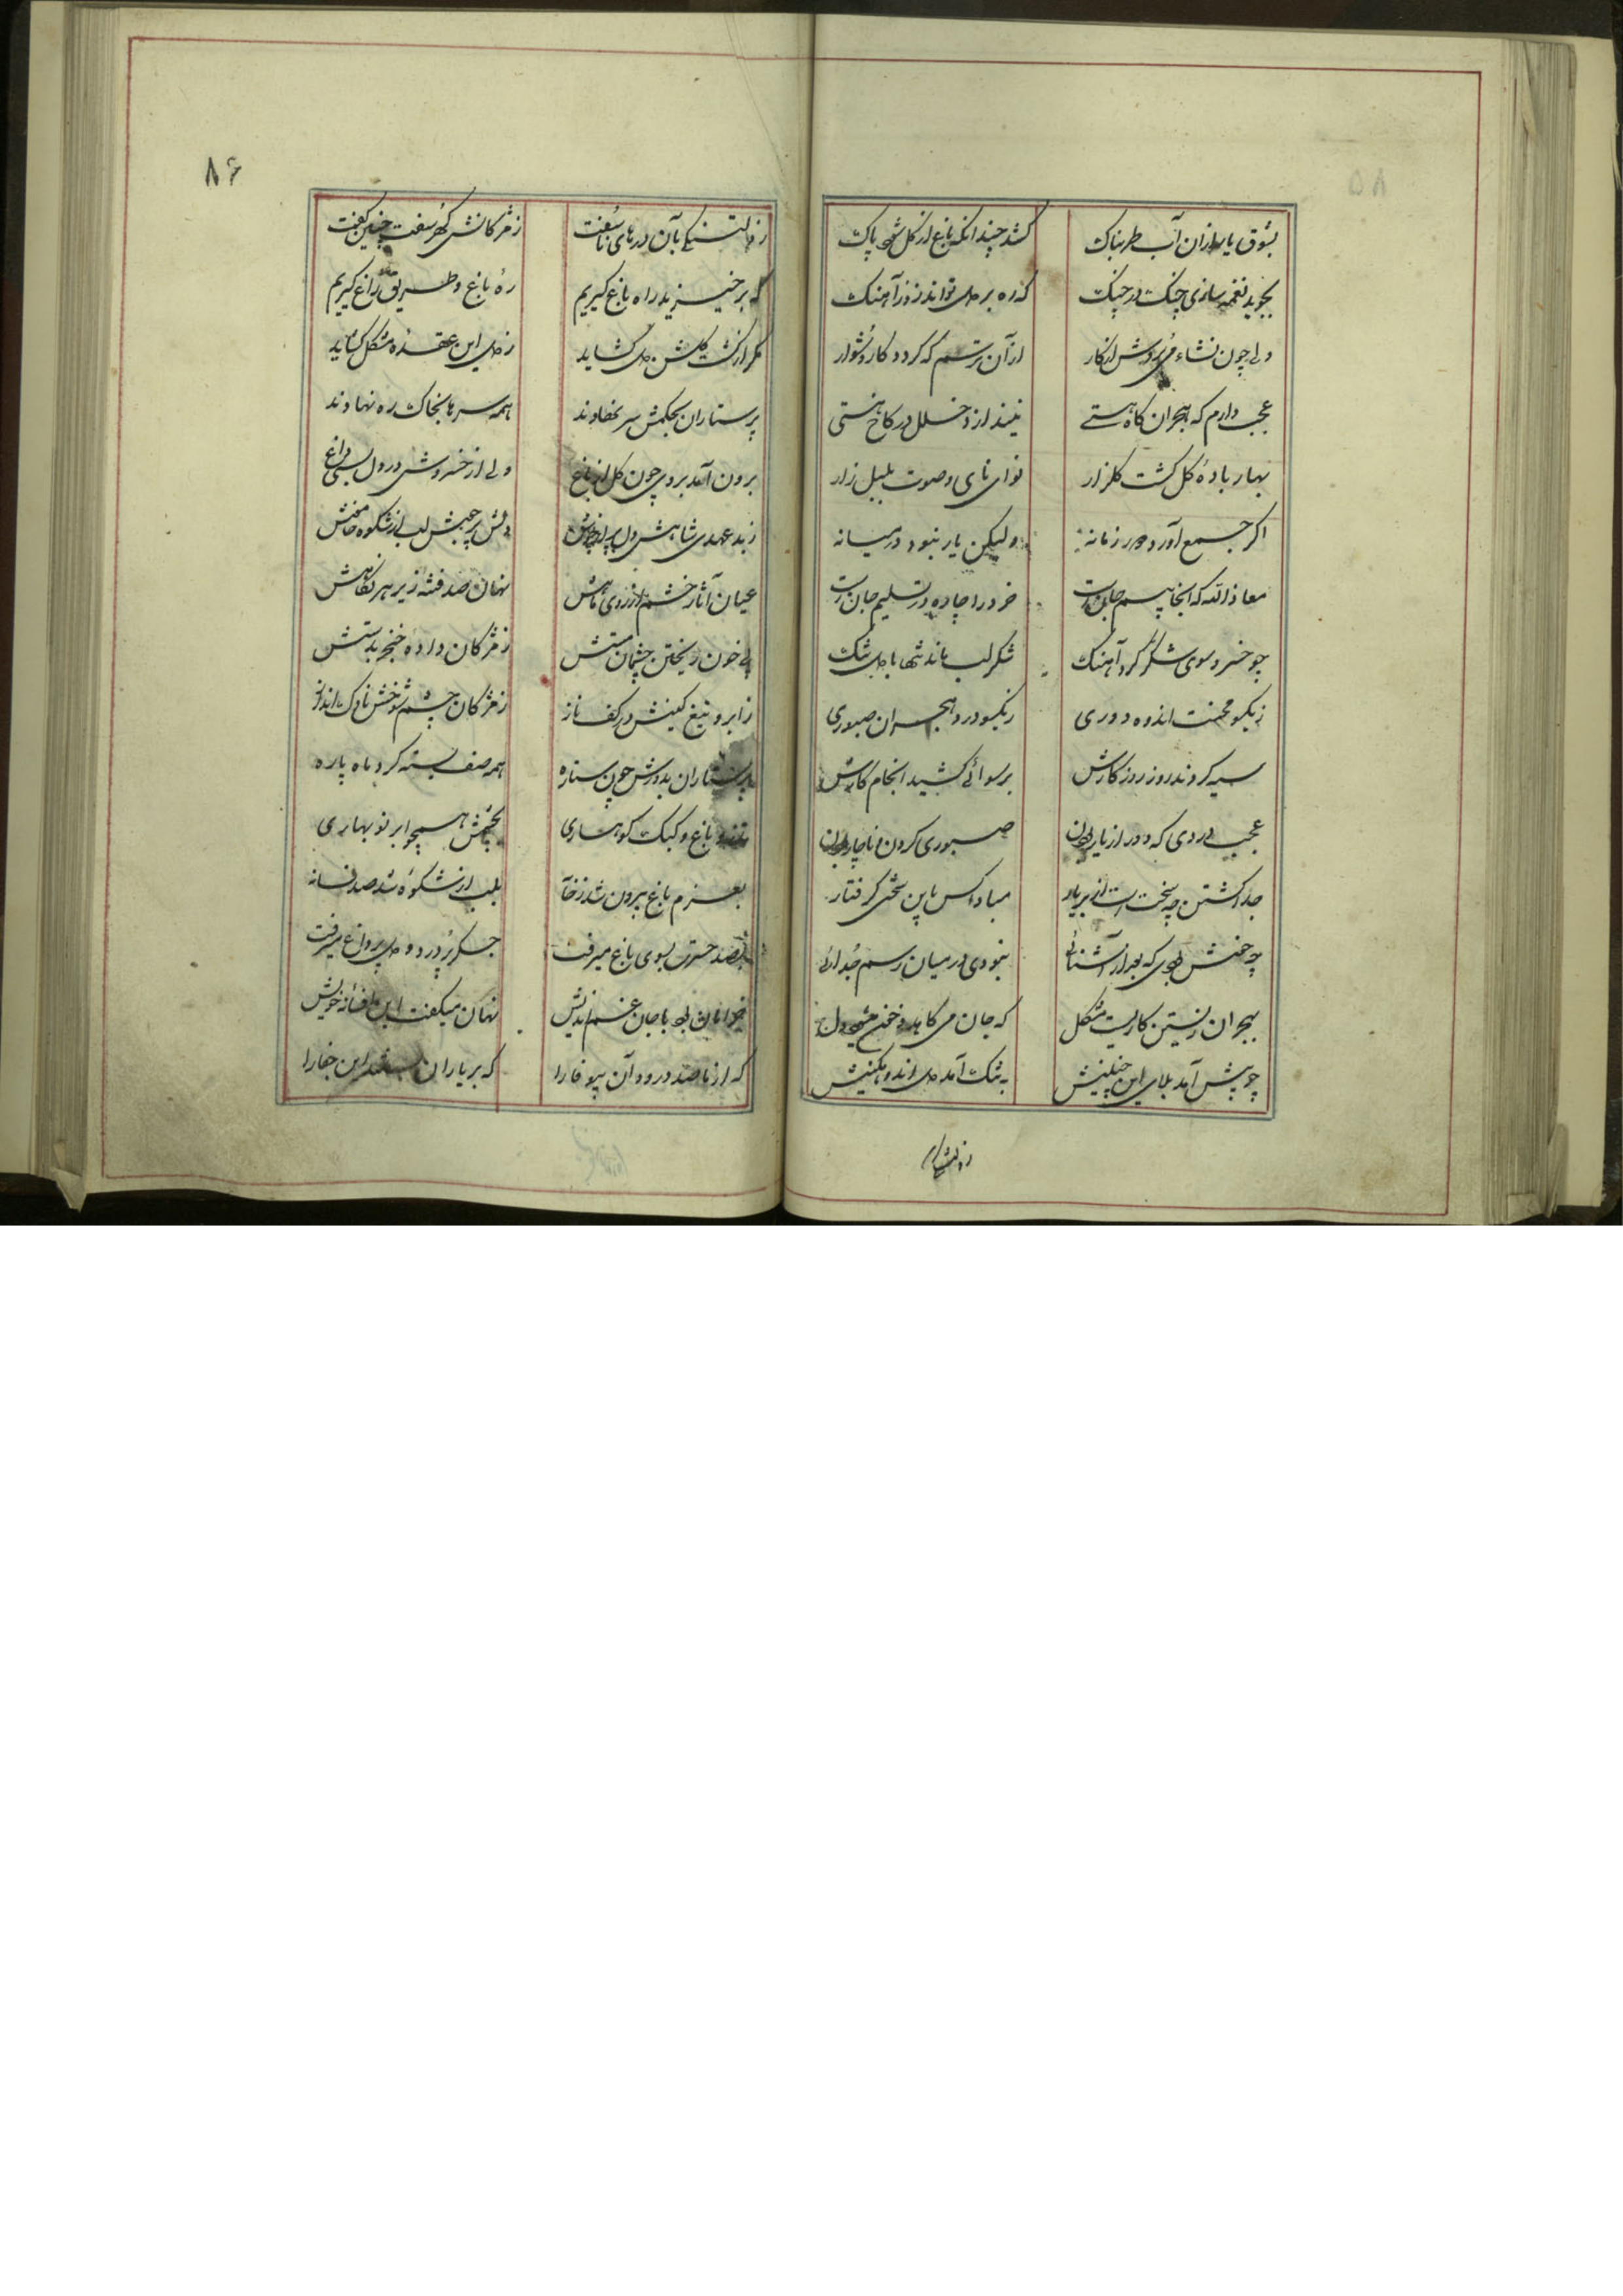 بشوق یار ازان آب طربناک
کشد چندانکه باغ از گل شود پاک
بجوید نغمه سازی چنگ در چنگ
که ره بر دل تواند زد ز آهنگ
ولی چون نشاء می بردش از کار
از آن ترسم که گردد کار دشوار
عجب دارم که هجران گاه مستی
نیندازد خلل در کاخ هستی
بهار باده گل گشت گلزار
نوای نای و صوت بلبل زار
اگر جمع آورد دور زمانه
ولیکن یار نبود در میانه
معاذ الله که آنجا بیم جان است
خرد را چاره در تسلیم جان است
چو خسرو سوی شکر کرد آهنگ
شکر لب ماند تنها با دل تنگ
ز یکسو محنت اندوه دوری
ز یکسو درد هجران صبوری
سیه کردند روز روزگارش
برسوائی کشید انجام کارش
عجب دردی که دور از یار بودن
صبوری کردن و ناچار بودن
جدا گشتن چه سخت است از بر یار
مبادا کس باین سختی گرفتار
چه خوش بودی که بعد از آشنائی
نبودی در میان رسم جدائی
بهجران زیستن کاریست مشکل
که جان می کاهد و خون میشود دل
چو پیش آمد بلای این چنینش
به تنک آمد دل اندوهگینش
ز دلتنگی بآن درهای ناسفت
ز مژگانش گهر سفت و چنین گفت
که برخیزید راه باغ گیریم
ره باغ و طریق راغ گیریم
مگر از گشت گلشن دل گشاید
ز دل این عقده مشکل گشاید
پرستاران بحکمش سر نهادند
همه سرها بخاک ره نهادند
برون آمد بروی چون گل از باغ
ولی از خسروش در دل بسی داغ
ز بد عهدی شاهش دل پر از جوش
دلش پر جنبش لب از شکوه خاموش
عیان آثار خشم از روی ماهش
نهان صد فتنه زیر هر نگاهش
پی خون ریختن چشمان مستش
ز مژگان داده خنجر بدستش
ز ابرو تیغ کینش در کف ناز
ز مژگان چشم شوخش ناوک انداز
پرستاران بدورش چون ستاره
همه صف بسته گرد ماه پاره
تذرو باغ و کبک کوهساری
بچشمش همچو ابر نوبهاری
بعزم باغ بیرون شد ز خانه
بلب از شکوه شد صد فسانه
بصد حسرت بسوی باغ میرفت
جگر پر درد و دل پر داغ میرفت
خرامان بود با جان غم اندیش
نهان میگفت این افسانه خویش
که از ما صد درود آن بیوفا را
که بر یاران پسندد این جفا را
ز دلتنگی
۸۶
۵۸